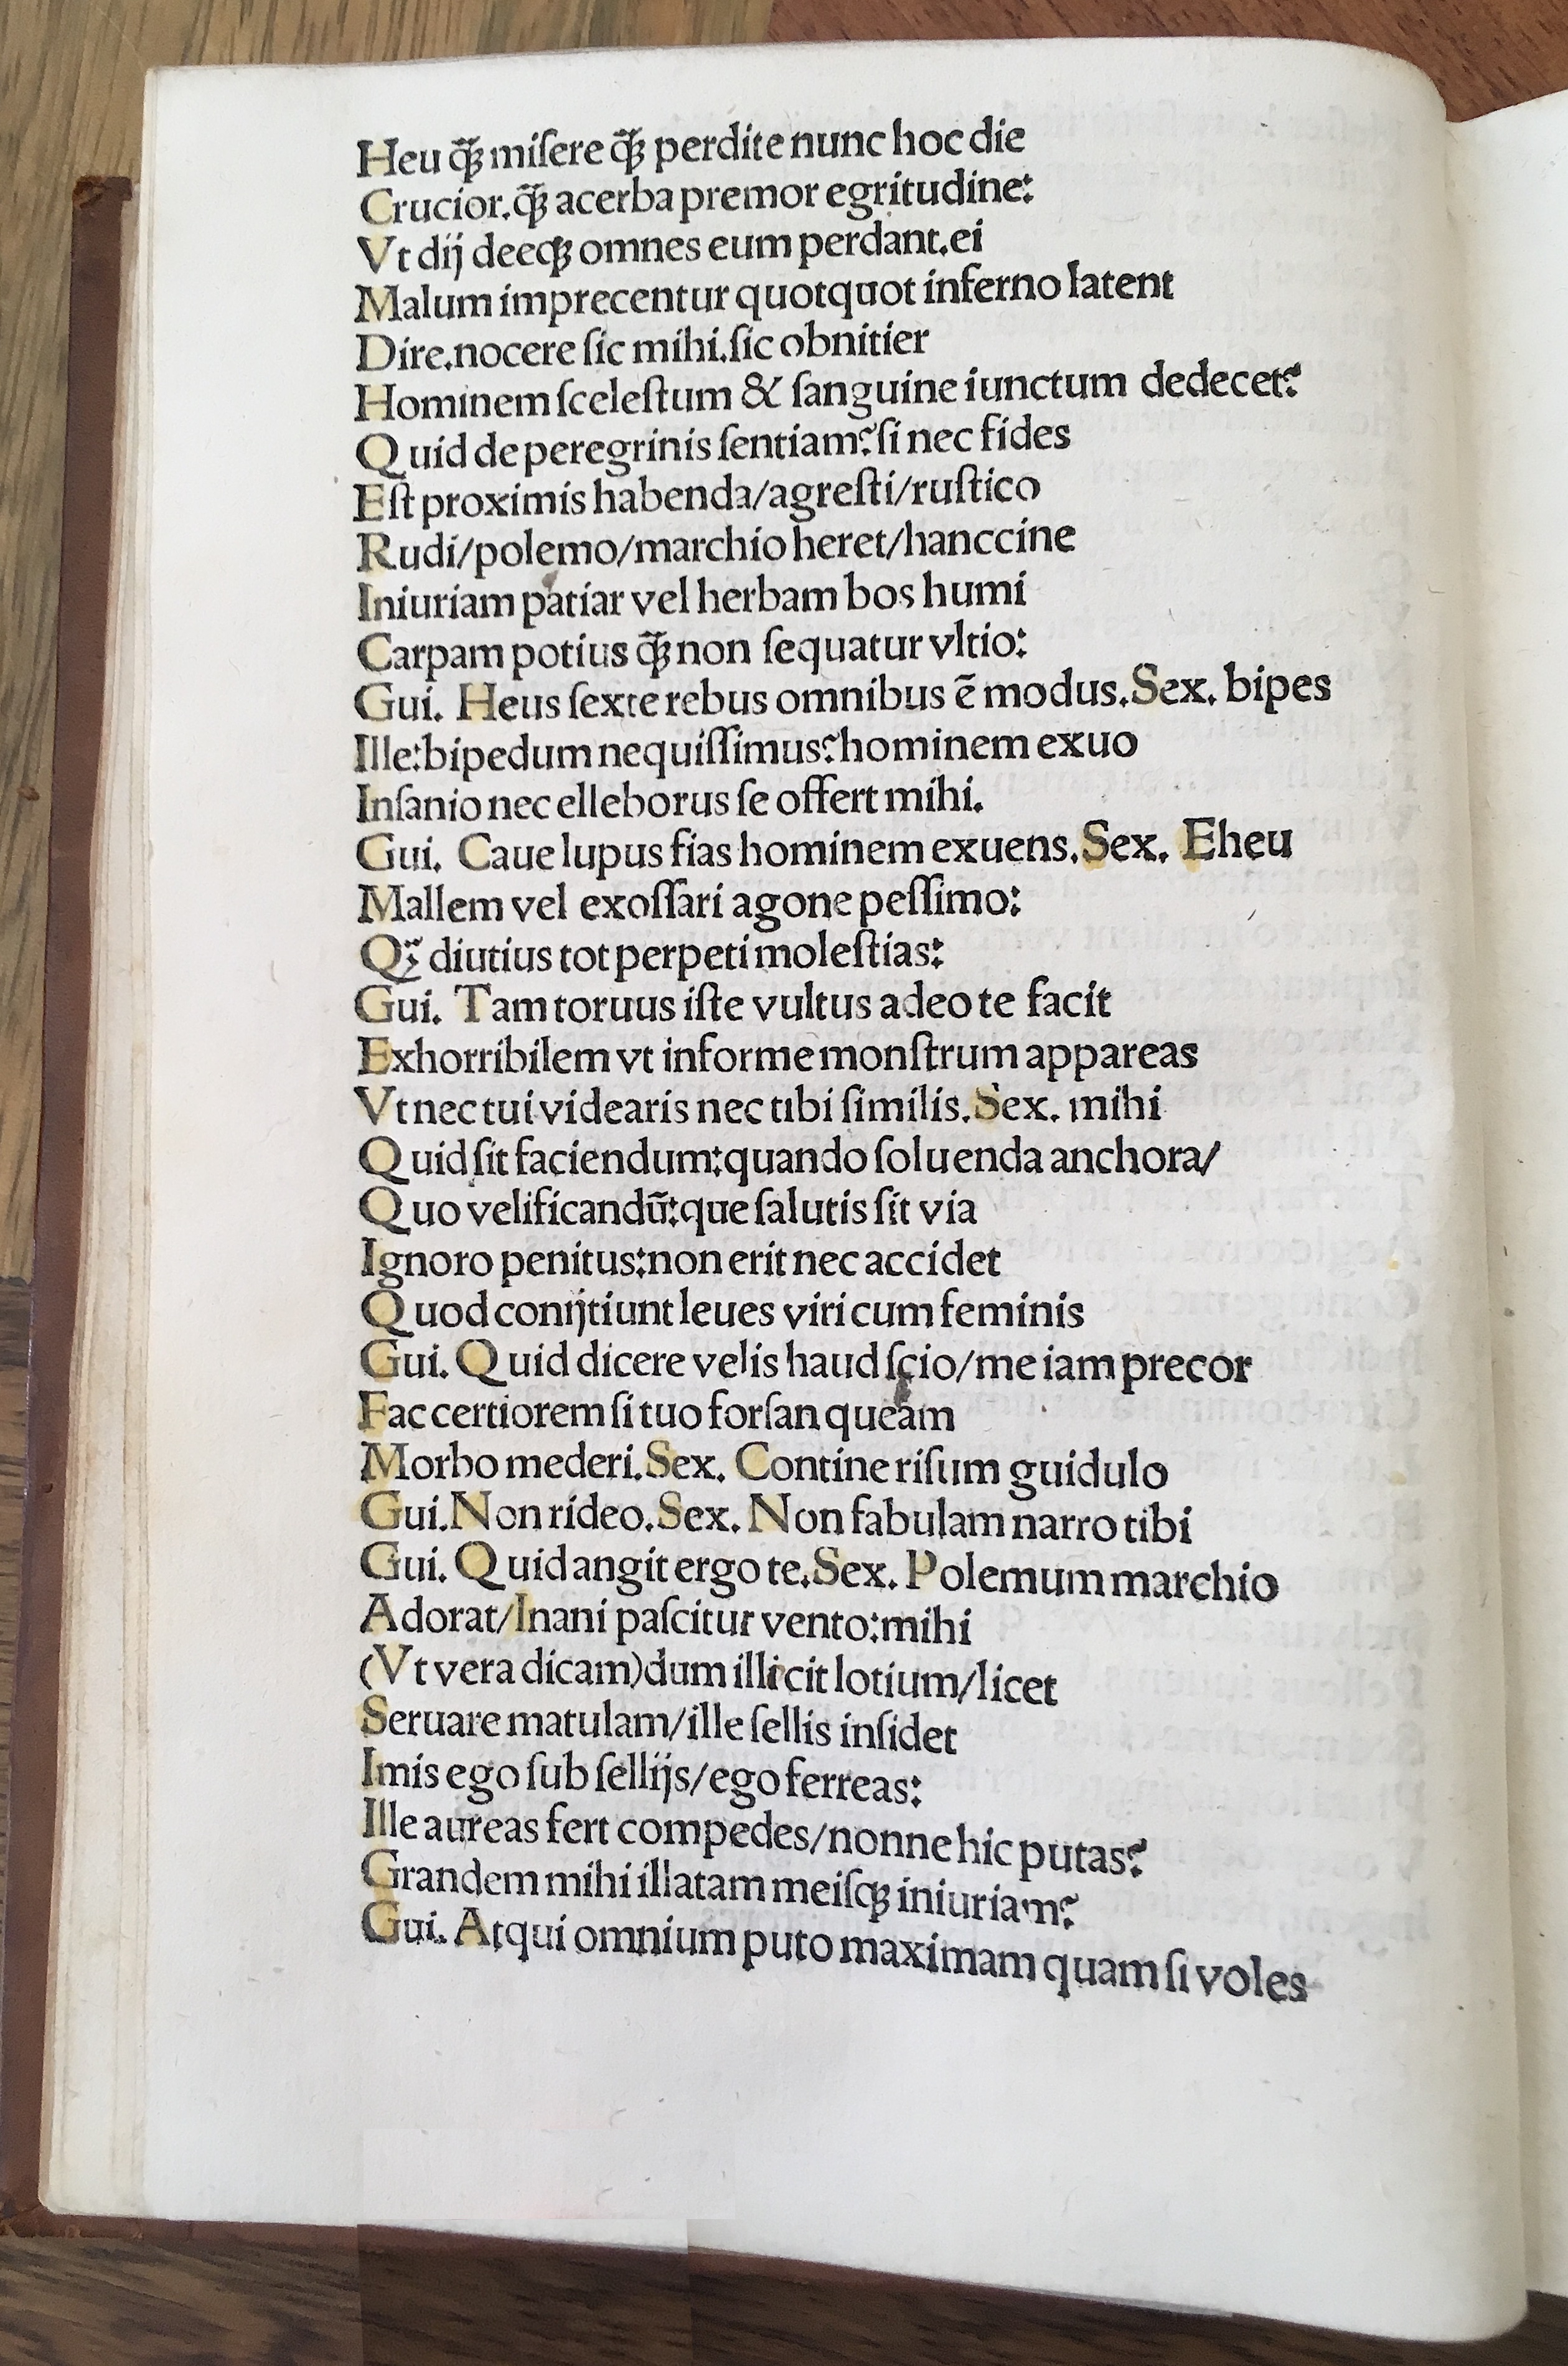 Heu q̃ꝫ miſere q̃ꝫ perdite nunc hoc die
Crucior.q̃ꝫ acerba premor egritudine:
Vt dij deeqꝫ omnes eum perdant.ei
Malum imprecentur quotquot inferno latent
Dire.nocere ſic mihi.ſic obnitier
Hominem ſceleſtum & ſanguine iunctum dedecet?
Quid de peregrinis ſentiam?ſi nec fides
Eſt proximis habenda/agreſti/ruſtico
Rudi/polemo/marchio heret/hanccine
Iniuriam patiar vel herbam bos humi
Carpam potius q̃ꝫ non ſequatur vltio:
Gui. Heus ſexte rebus omnibus ē modus.Sex. bipes
Ille:bipedum nequiſſimus?hominem exuo
Inſanio nec elleborus ſe offert mihi.
Gui. Caue lupus fias hominem exuens.Sex. Eheu
Mallem vel exoſſari agone peſſimo:
Q̃ꝫ diutius tot perpeti moleſtias:
Gui. Tam toruus iſte vultus adeo te facit
Exhorribilem vt informe monſtrum appareas
Vt nec tui videaris nec tibi ſimilis.Sex. mihi
Quid ſit faciendum:quando ſoluenda anchora/
Quo velificandū:que ſalutis ſit via
Ignoro penitus:non erit nec accidet
Quod conijtiunt leues viri cum feminis
Gui. Quid dicere velis haud ſcio/me iam precor
Fac certiorem ſi tuo forſan queam
Morbo mederi.Sex. Contine riſum guidulo
Gui.Non rideo.Sex. Non fabulam narro tibi
Gui. Quid angit ergo te.Sex. Polemum marchio
Adorat/Inani paſcitur vento:mihi
(Vt vera dicam)dum illicit lotium/licet
Seruare matulam/ille ſellis inſidet
Imis ego ſub ſellijs/ego ferreas:
Ille aureas fert compedes/nonne hic putas?
Grandem mihi illatam meiſqꝫ iniuriam?
Gui. Atqui omnium puto maximam quam ſi voles